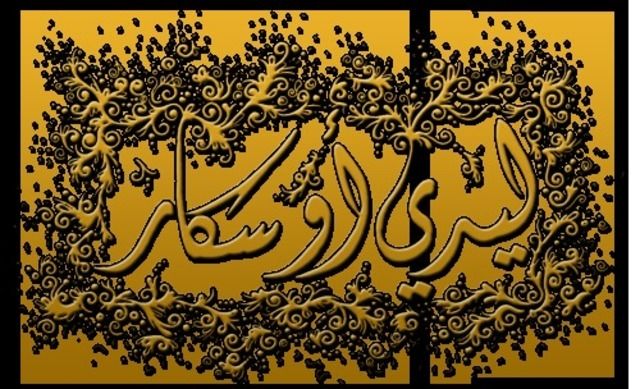 ليدي اوسكار